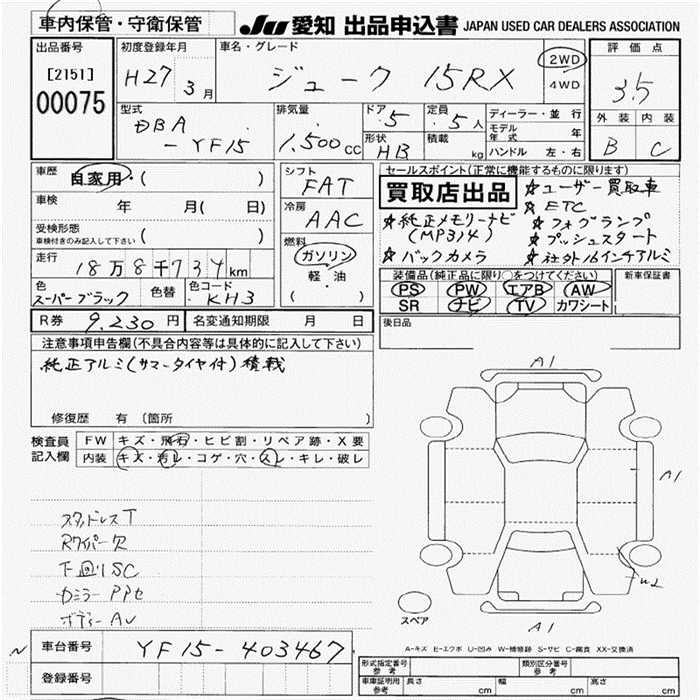 車内保管・守衛保管 JU 愛知 出品申込書 JAPAN USED CAR DEALERS ASSOCIATION
出品番号 初度登録年月 車名・グレード 評価点
[2151] H27 3月 ジューク 15RX 2WD 4WD 3.5
00075
型式 排気量 ドア 5 定員 5人 ディーラー・並行 外装 内装
DBA - YF15 1,500cc 形状 HB 積載 kg モデル年式 年 B C
ハンドル 左・右
車歴 自家用・( ) シフト FAT セールスポイント(正常に機能するものに限ります)
買取店出品 ☆ユーザー買取車
車検 年 月( 日) 冷房 AAC ☆ETC
☆純正メモリーナビ ☆フォグランプ
受検形態 ( ) (MP314) ☆プッシュスタート
車検付きのみ記入して下さい 燃料 ガソリン ☆バックカメラ ☆社外16インチアルミ
走行 18万8千734km 軽・油 装備品(純正品に限り○をつけてください) 新車保証書
( ) PS PW エアB AW
色 スーパーブラック 色替 色コード KH3 SR ナビ TV カワシート
R券 9,230円 名変通知期限 月 日 後日品
注意事項申告欄(不具合内容等は具体的に記入して下さい)
純正アルミ(サマータイヤ付)積載
修復歴 有 (箇所 )
検査員記入欄 FW キズ・飛石・ヒビ割・リペア跡・X要
内装 キズ・汚レ・コゲ・穴・スレ・キレ・破レ
A1
A1
スタッドレスT
Rワイパー欠
下回りSC
カミラーPPセ
ボディーAU
スペア
A1
A-キズ E-エクボ U-凹み W-補修跡 S-サビ C-腐食 XX-交換済
車台番号 YF15-403467
登録番号
形式指定番号 参考 類別区分番号 参考
車庫証明用 参考 長さ cm 幅 cm 高さ cm